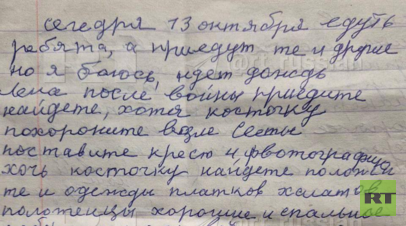 сегедря 13 онтября едуть
ребята, а приедут те и другие
но я боюсь, идет дождь
Лена после войны приедите
найдете, хотя косточку
похороните возле Светы
поставите крест и фвотографию
хоч косточку найдете полож
те и одежды платков халатов
полотенцы хорошие и спальное
RT